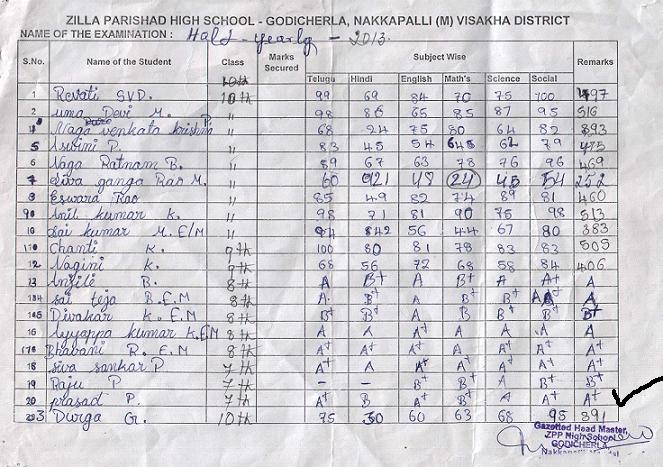 ZILLA PARISHAD HIGH SCHOOL - GODICHERLA, NAKKAPALLI (M) VISAKHA DISTRICT
NAME OF THE EXAMINATION : Half - yearly - 2013.
S.No. Name of the Student Class Marks Secured Subject Wise Remarks
10th Telugu Hindi English Math's Science Social
1 Revati S.V.D. 10th 99 69 84 70 75 100 497
2 Uma Devi M. " 98 86 65 85 87 95 516
Naga venkata krishna P. " 68 24 75 80 64 82 393
5 Asvini P. " 83 45 54 62 79
6 Naga Ratnam B. " 89 67 63 78 76 96 469
7 Siva ganga Rao M. " 60 21 48 24 45 54 252
8 Eswara Rao " 85 49 82 74 89 81 460
9 Anil kumar K. " 98 71 81 90 75 98 513
10 Sai kumar M. E/M " 94 42 56 44 67 80 383
11 Chanti K. 9th 100 80 81 78 83 83 505
12 Nagini K. 9th 68 56 72 68 58 84 406
13 Anjili B. 8th A B+ A B+ A A+ A
14 Sai teja B. E.M 8th A B+ A B+ B+ A A
15 Divakar K. E.M 8th B+ B+ A B+ B+ B+ B+
16 Ayyappa kumar K. E.M 8th A A A+ A A A A
17 Bhavani R. E.M 8th A+ A+ A+ A A+ A+ A+
18 Siva sankar P 7th A+ A A+ A+ A+ A+ A+
19 Raju P 7th - - B+ B+ A B+ B+
20 prasad P. 7th A+ B A A+ A A+ A+
Durga G. 10th 75 30 60 63 68 95 391
Gazetted Head Master,
ZPP High School
GODICHERLA,
Nakkapalli Mandal